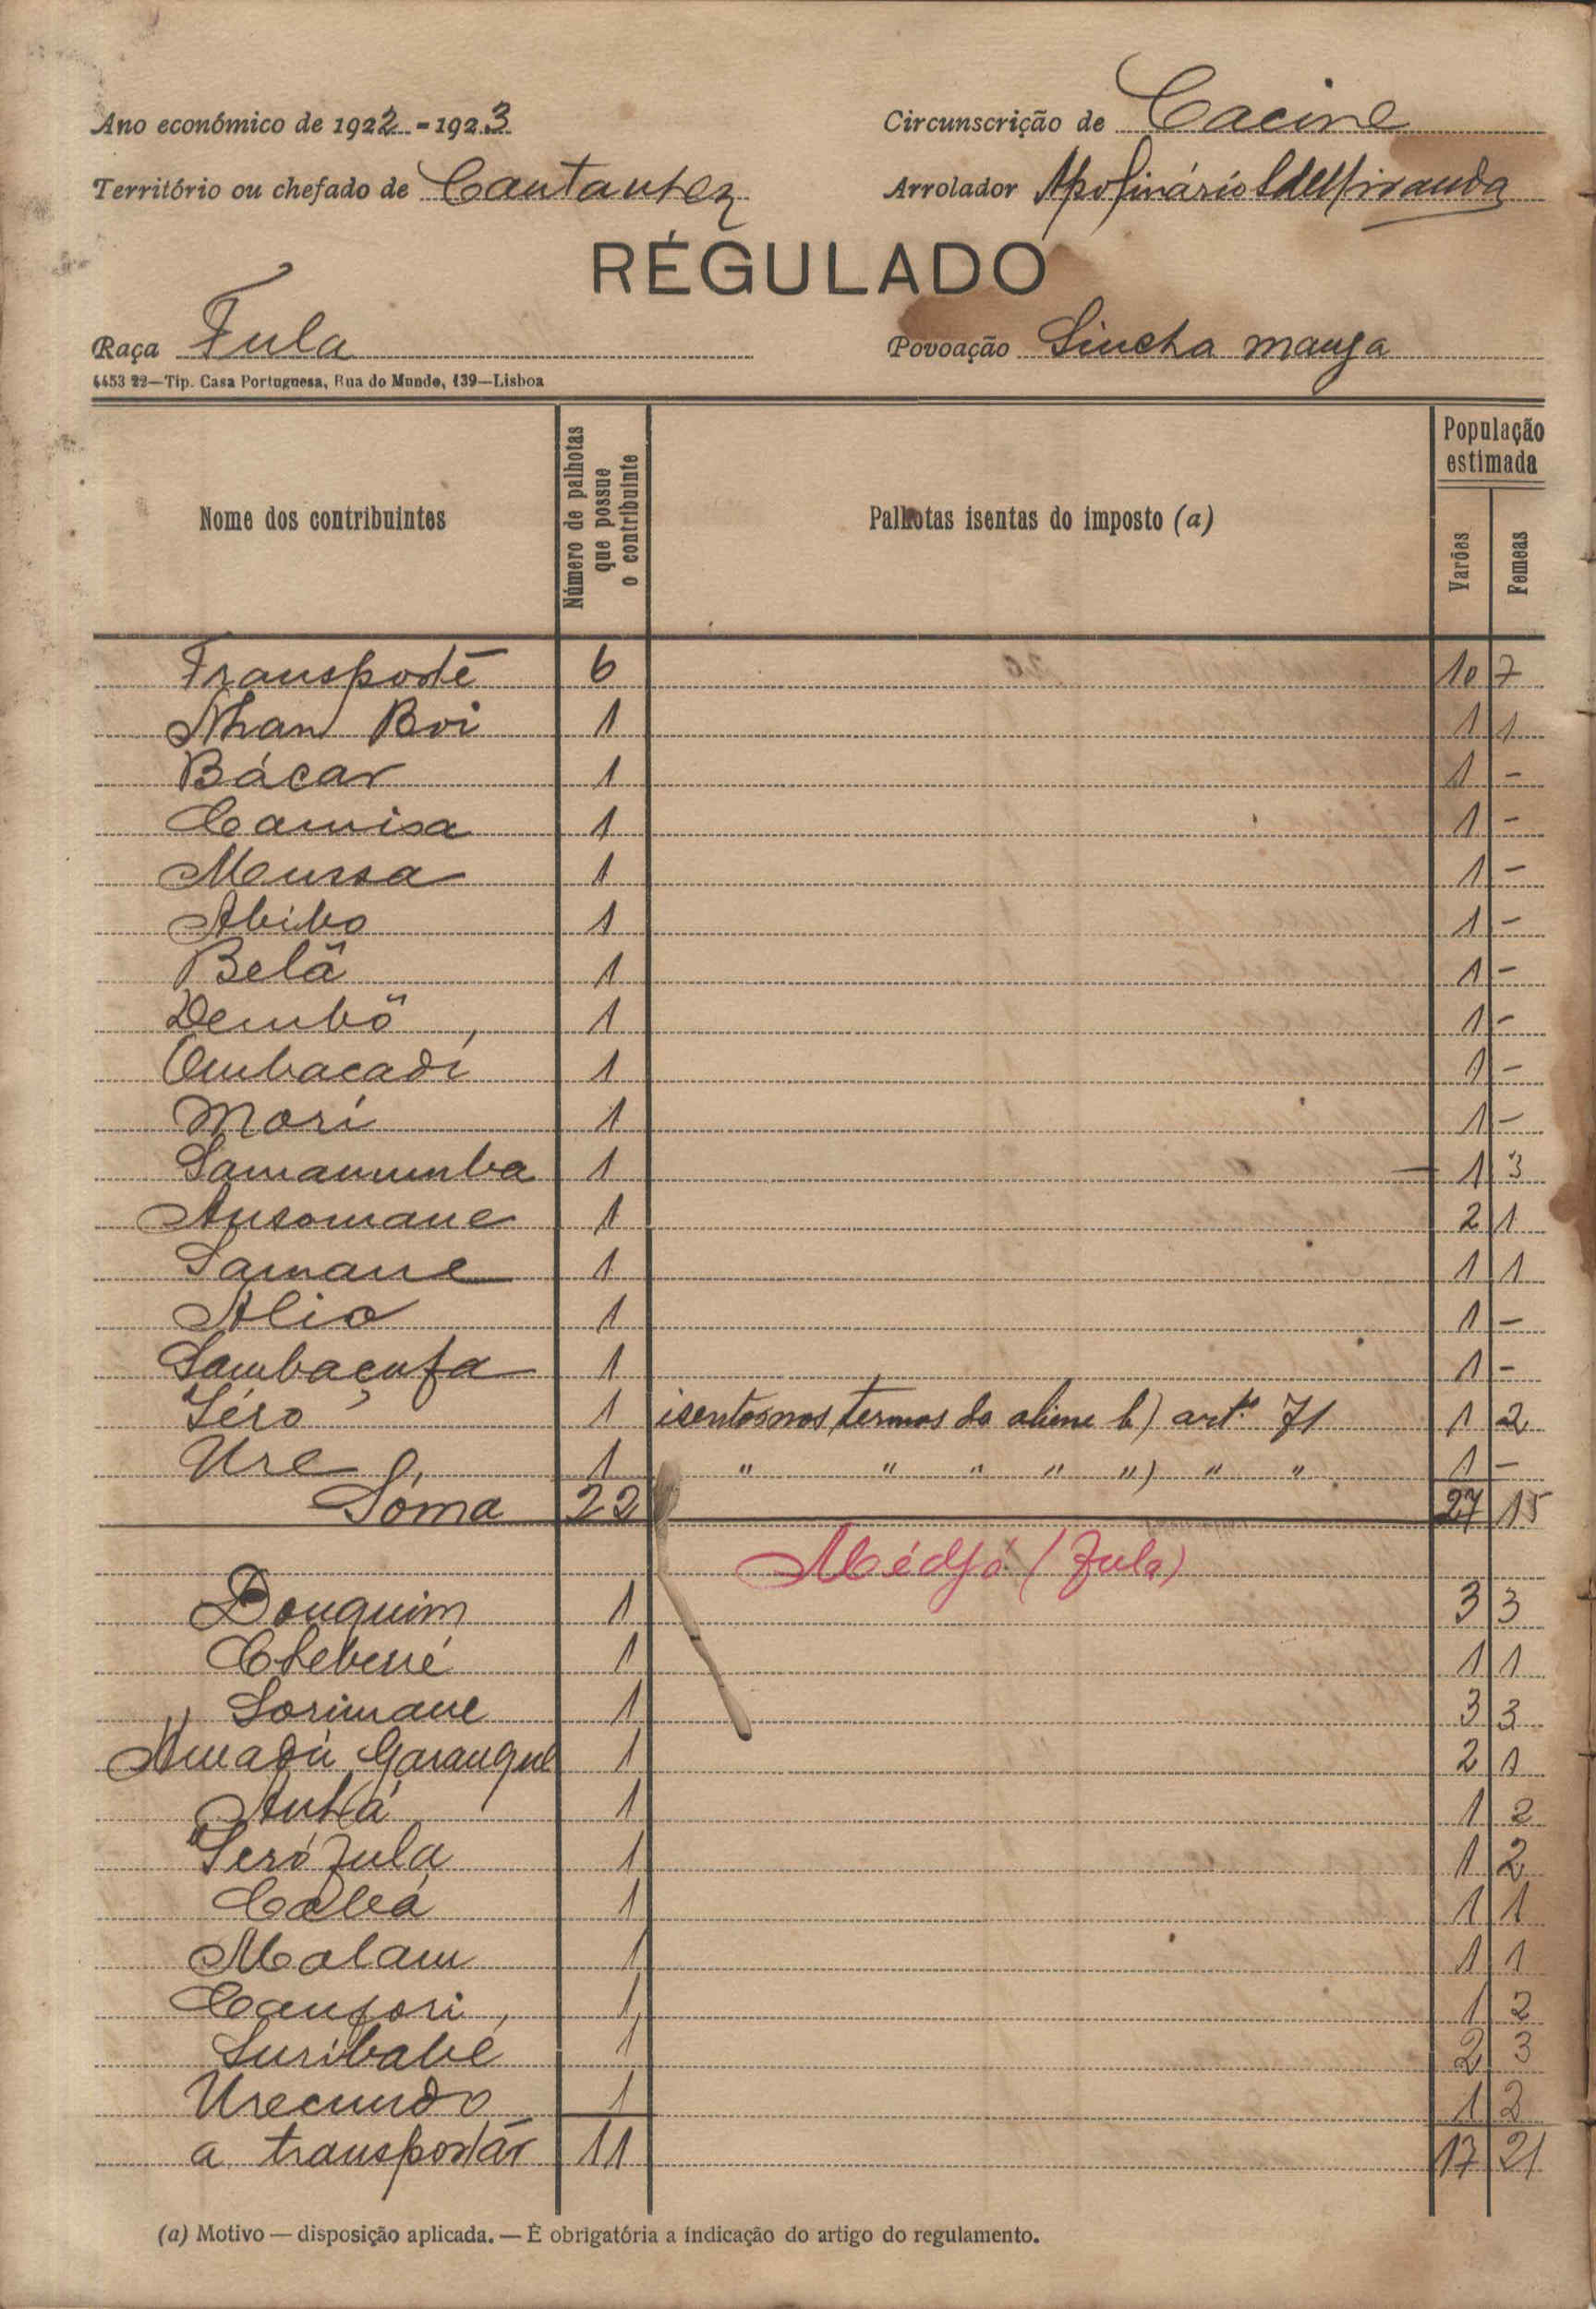 Ano económico de 1922-1923 Circunscrição de Cacine
Território ou chefado de Cantanhez Arrolador Apolinário
RÉGULADO
Raça Fula Povoação Sincha manga
4453 22—Tip. Casa Portuguesa, Rua do Mundo, 139—Lisboa
Nome dos contribuintes Número de palhotas que possue o contribuinte Palhotas isentas do imposto (a) População estimada Varões Femeas
Transporte 6 10 7
Nhan Boi 1 1 1
Bácar 1 1 -
Camisa 1 1 -
Mussa 1 1 -
Abibo 1 1 -
Belã 1 1 -
Dembô 1 1 -
Umbacadi 1 1 -
Mori 1 1 -
Samanumba 1 1 3
Ansomane 1 2 1
Samane 1 1 1
Alio 1 1 -
Sambaçufa 1 1 -
Séro 1 isentos nos termos da aline b) art.º 71 1 2
Ure 1 " " " " ") " " 1 -
Sóma 22 27 15
Médjó (Fula)
Donquim 1 3 3
1 1 1
Sorimane 1 3 3
Amadú Garanque 1 2 1
Anhá 1 1 2
Seró Fula 1 1 2
Cabá 1 1 1
Malam 1 1 1
Canfori 1 1 2
Suribabé 1 2 3
Urecundo 1 1 2
a transportar 11 17 21
(a) Motivo — disposição aplicada. — É obrigatória a indicação do artigo do regulamento.